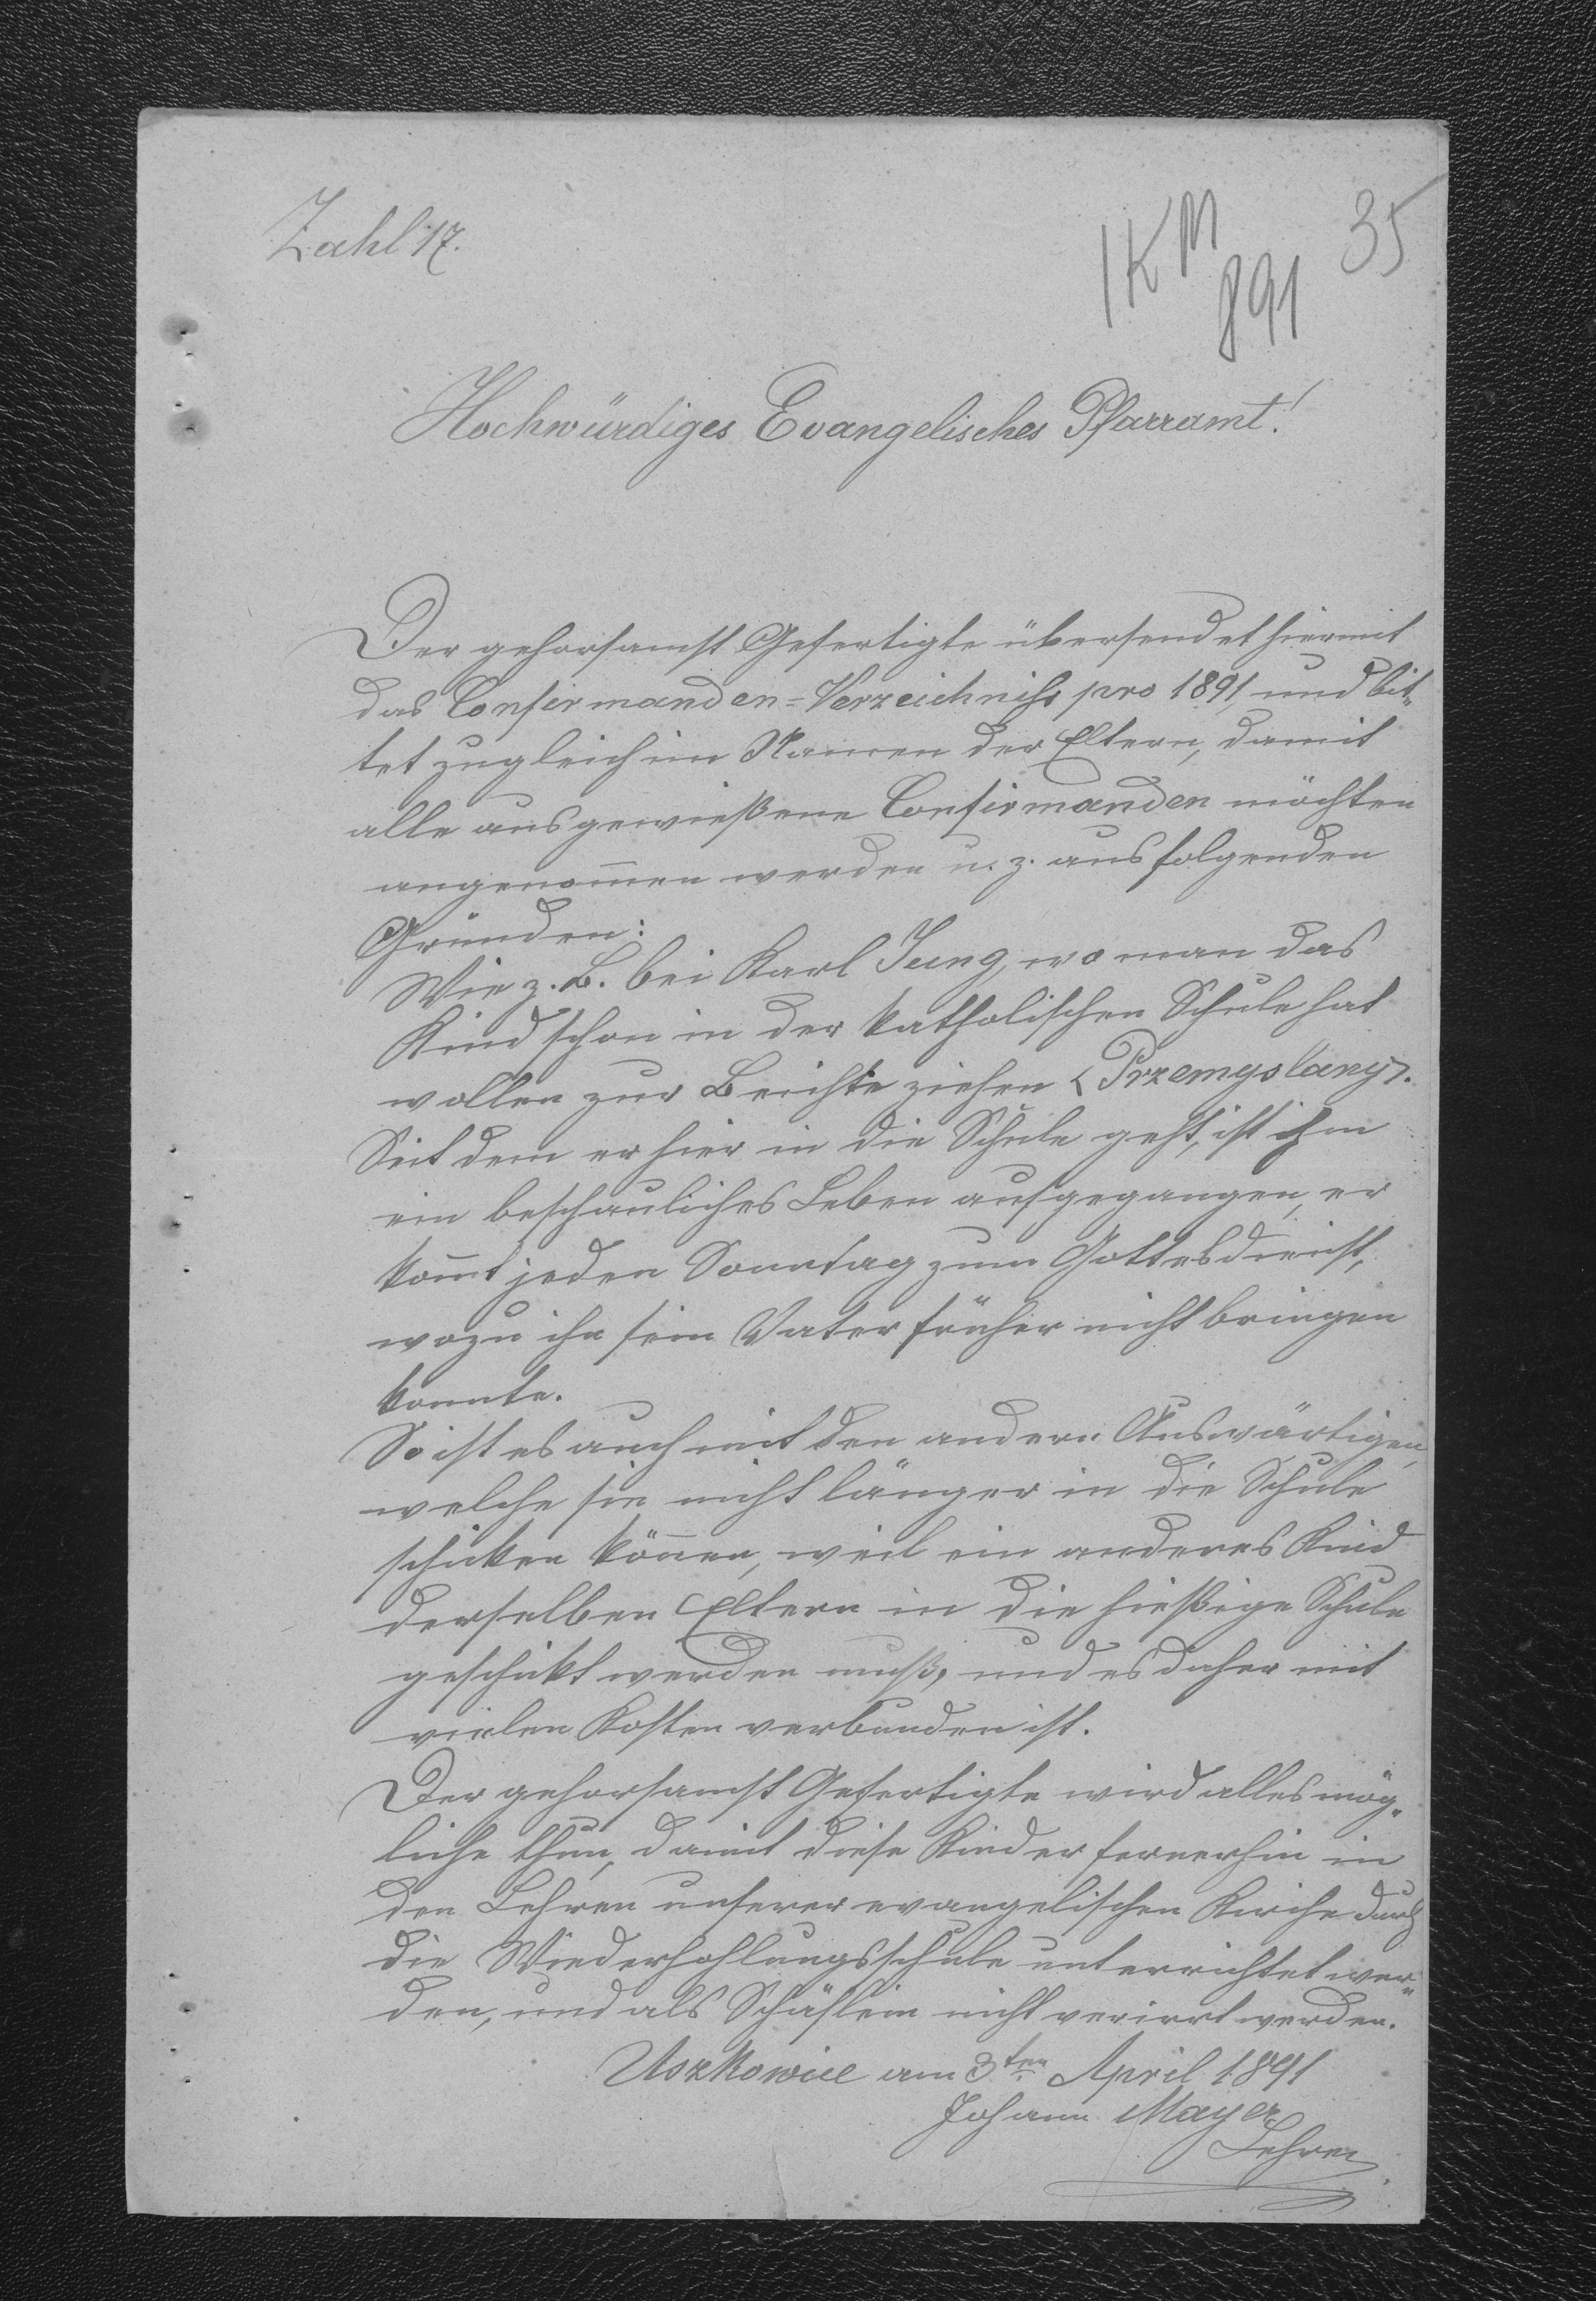 Zahl 17.
1KM
891
35
Hochwürdiges Evangelisches Pfarramt!
Der gehorsamst Gefertigte übersendet hiermit
das Confirmanden-Verzeichniss pro 1891, und bit-
tet zugleich im Namen der Eltern, damit
alle ausgewießene Confirmanden möchten
angenom̄en werden u. z. aus folgenden
Gründen:
Wie z. B. bei Karl Jung, wo man das
Kind schon in der katholischen Schule hat
wollen zur Beichte ziehen (Przemyslany).
Seit dem er hier in die Schule geht, ist ihm
ein beschauliches Leben aufgegangen, er
kom̄t jeden Sonntag zum Gottesdienst,
wozu ihn sein Vater früher nicht bringen
konnte.
So ist es auch mit den andern Auswärtigen,
welche sie nicht länger in die Schule
schicken kön̄en, weil ein anderes Kind
derselben Eltern in die hießige Schule
geschickt werden muß, und es daher mit
vielen Kosten verbunden ist.
Der gehorsamst Gefertigte wird alles mög-
liche thun, damit diese Kinder fernerhin in
den Lehren unserer evangelischen Kirche durch
die Wiederhohlungsschule unterrichtet wer-
den, und als Schäflein nicht verirrt werden.
Uszkowice am 3ten April 1891
Johann Mayer
Lehrer